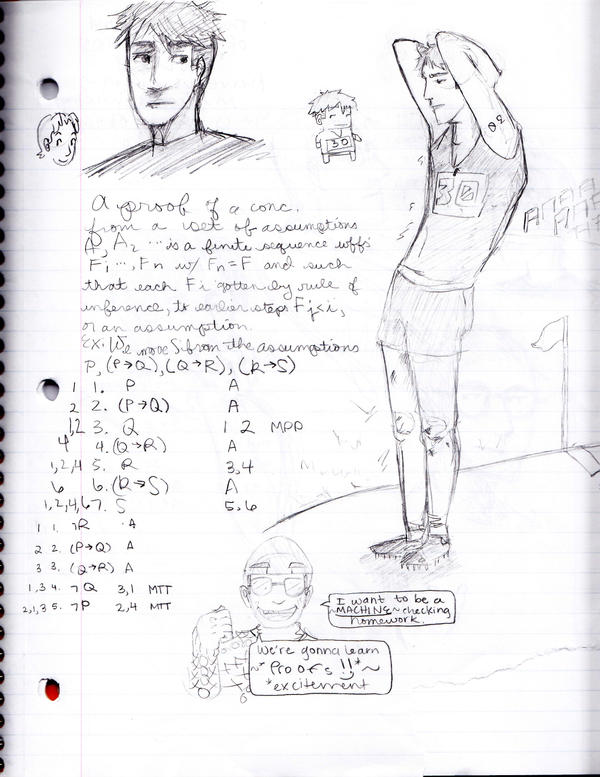 30
30
A proof of a conc.
from a set of assumptions
A, A₂ ... is a finite sequence wffs
F₁ ..., Fn w/ Fn=F and such
that each Fi gotten by rule of
inference, to earlier steps Fj<i,
or an assumption.
Ex: We move S from the assumptions
P, (P→Q), (Q→R), (R→S)
1 1. P A
2 2. (P→Q) A
1,2 3. Q 1 2 MPP
4 4. (Q→R) A
1,2,4 5. R 3,4
6 6. (R→S) A
1,2,4,6 7. S 5,6
1 1. ¬R A
2 2. (P→Q) A
3 3. (Q→R) A
1,3 4. ¬Q 3,1 MTT
2,1,3 5. ¬P 2,4 MTT
I want to be a
~MACHINE~ checking
homework.
We're gonna learn
~* Proofs !! *~
*excitement